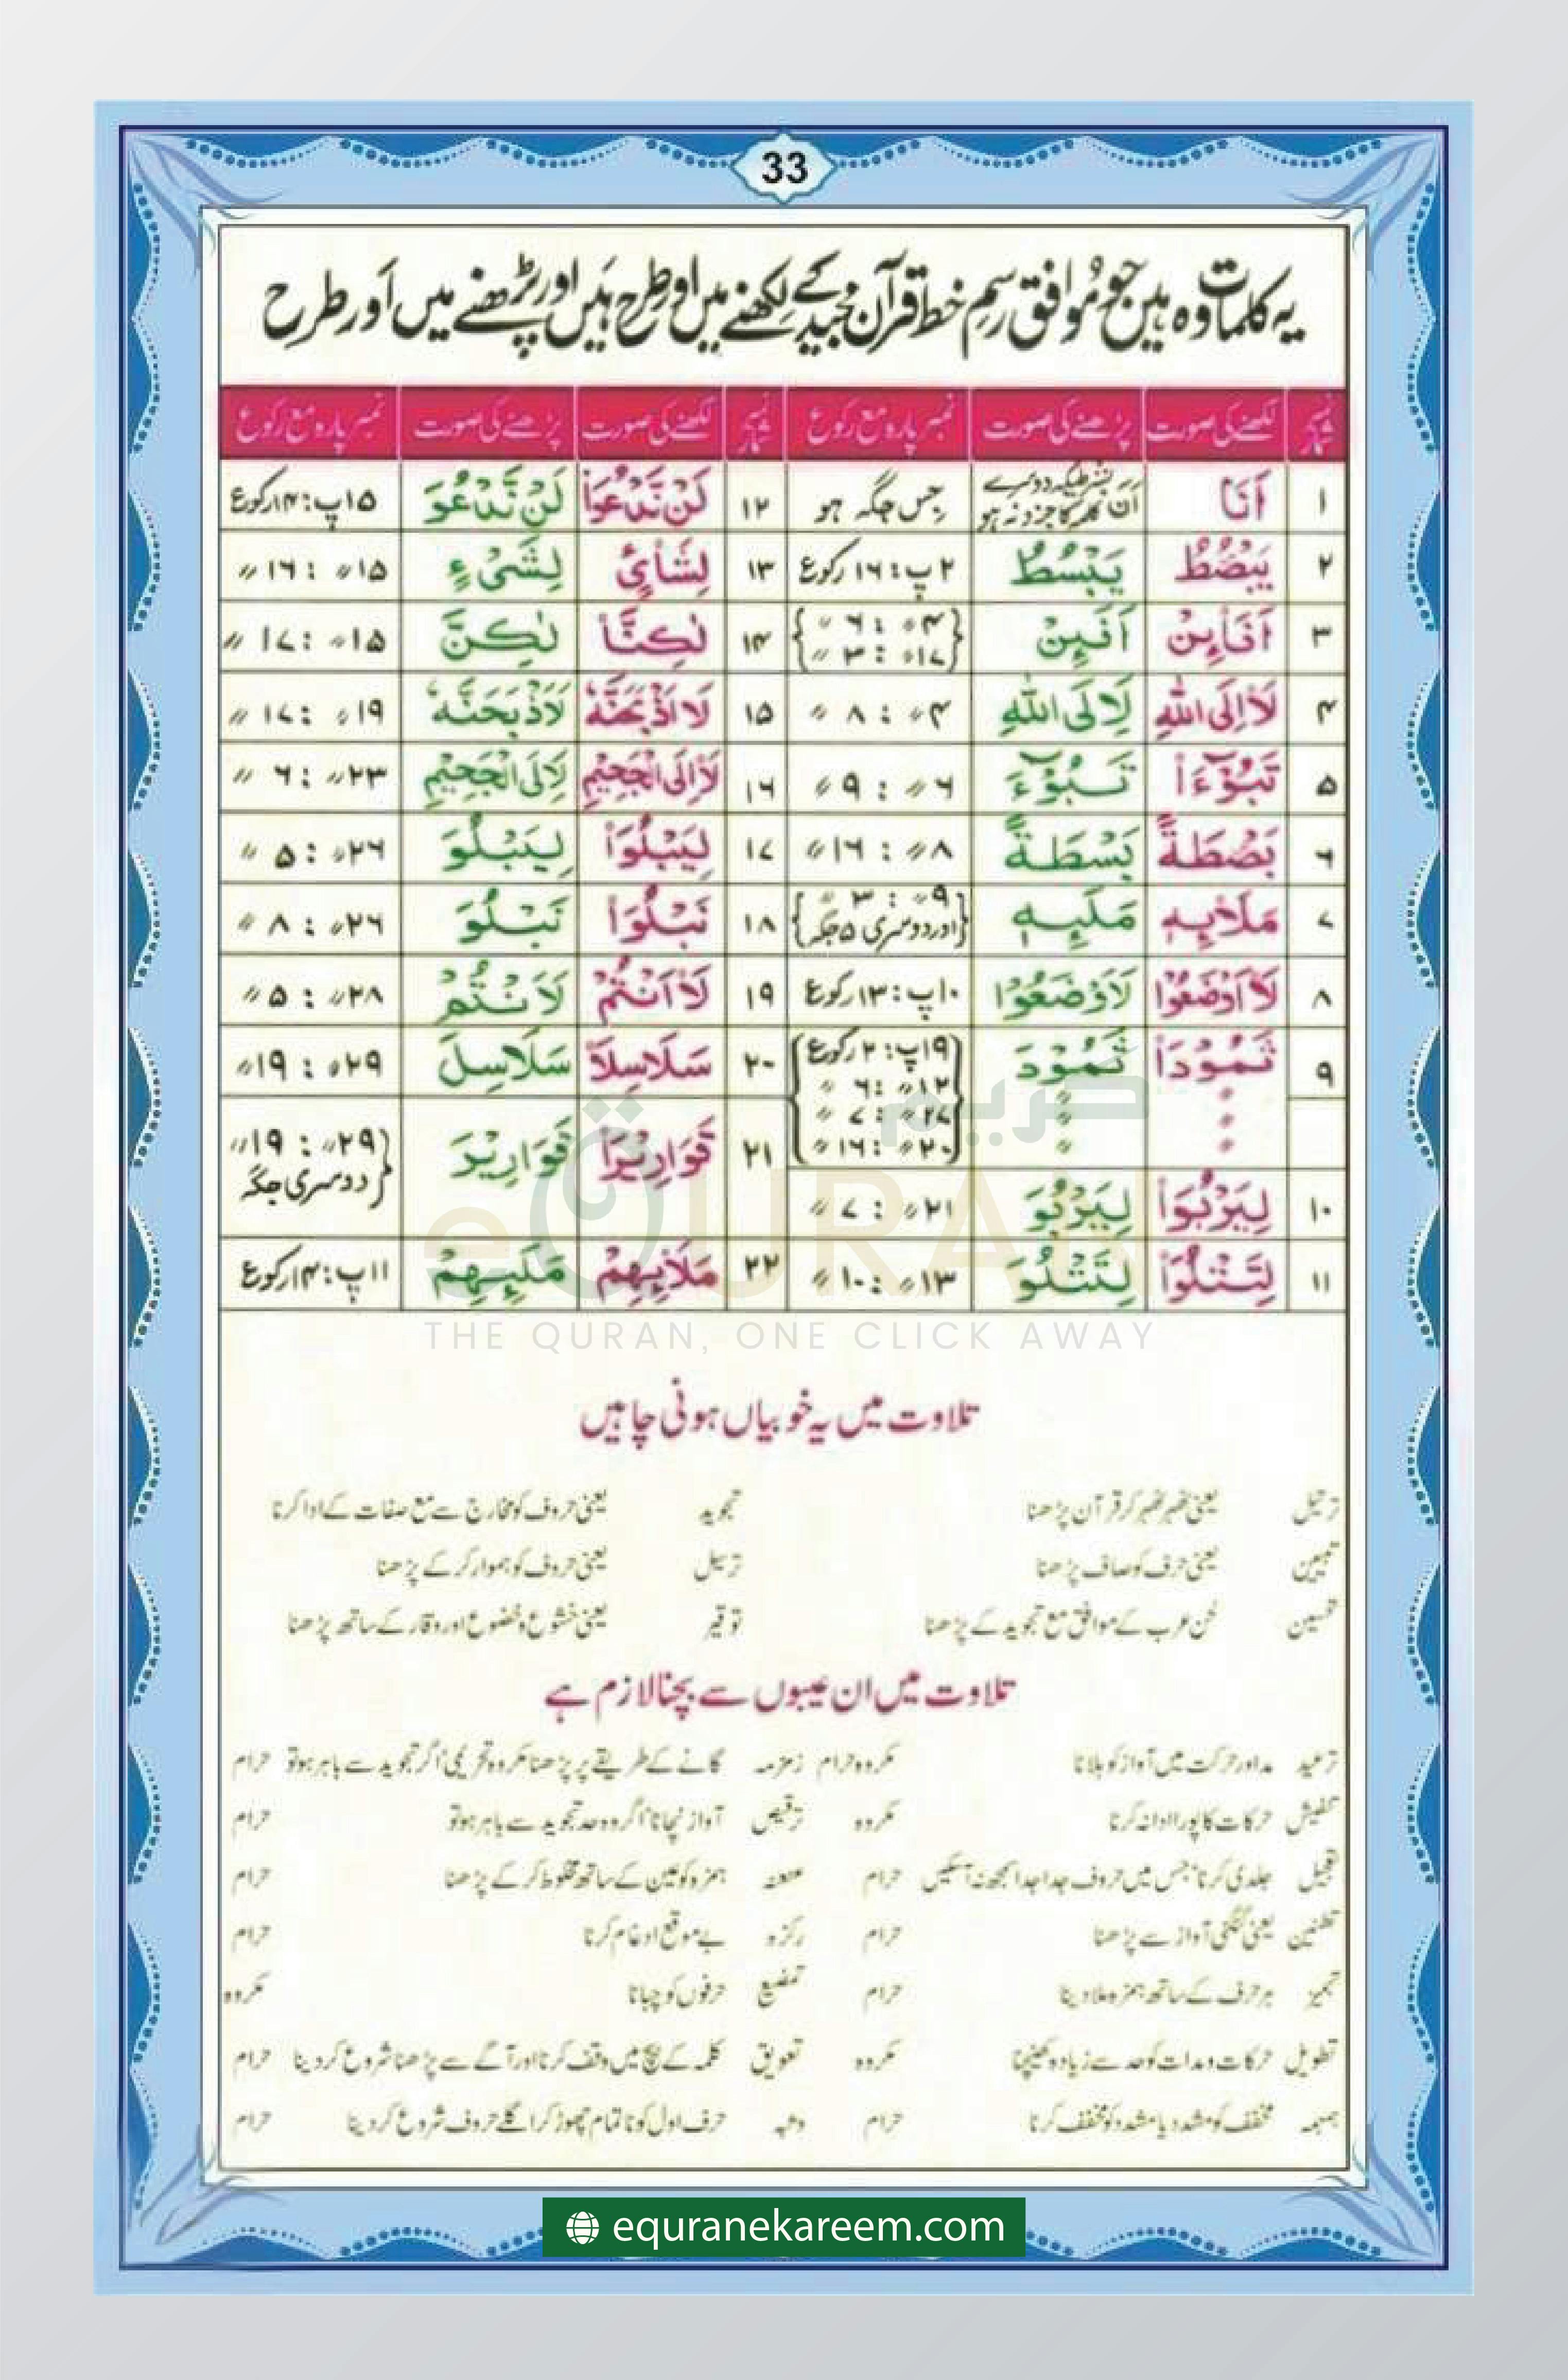 33
یہ کلمات وہ ہیں جو موافق رسم خط قرآن مجید کے لکھنے میں اور طرح ہیں اور پڑھنے میں اَور طرح
نمبر شمار لکھنے کی صورت پڑھنے کی صورت نمبر پارہ مع رکوع نمبر شمار لکھنے کی صورت پڑھنے کی صورت نمبر پارہ مع رکوع
۱ اَنَا اَنَ بشرطیکہ دوسرے کلمہ کا جزو نہ ہو جس جگہ ہو ۱۲ لَنْ نَّدْعُوَا۟ لَنْ نَّدْعُوَ ۱۵پ: ۱۴رکوع
۲ يَبْصُۜطُ يَبْسُطُ ۲پ: ۱۶رکوع ۱۳ لِشَا۟یْءٍ لِشَیْءٍ ۱۵〃 : ۱۶〃
۳ اَفَا۟ئِنْ اَفَئِنْ {۴〃 : ۶〃 ۱۷〃 : ۳〃} ۱۴ لٰكِنَّا۟ لٰكِنَّ ۱۵〃 : ۱۷〃
۴ لَا۟اِلَی اللّٰهِ لَاِلَی اللّٰهِ ۴〃 : ۸〃 ۱۵ لَا۟اَذْبَحَنَّهٗ لَاَذْبَحَنَّهٗ ۱۹〃 : ۱۷〃
۵ تَبُوْٓءَا۟ تَبُوْٓءَ ۶〃 : ۹〃 ۱۶ لَا۟اِلَی الْجَحِيْمِ لَاِلَی الْجَحِيْمِ ۲۳〃 : ۶〃
۶ بَصْۜطَةً بَسْطَةً ۸〃 : ۱۶〃 ۱۷ لِيَبْلُوَا۟ لِيَبْلُوَ ۲۶〃 : ۵〃
۷ مَلَا۟ئِهٖ مَلَئِهٖ {۹〃 : ۳〃 اور دوسری ۵ جگہ} ۱۸ نَبْلُوَا۟ نَبْلُوَ ۲۶〃 : ۸〃
۸ لَا۟اَوْضَعُوْا لَاَوْضَعُوْا ۱۰پ: ۱۳رکوع ۱۹ لَا۟اَنْتُمْ لَاَنْتُمْ ۲۸〃 : ۵〃
۹ ثَمُوْدَا۟ ثَمُوْدَ {۱۹پ: ۲رکوع ۲۰ سَلَاسِلَا۟ سَلَاسِلَ ۲۹〃 : ۱۹〃
〃 〃 ۱۲〃 : ۶〃
〃 〃 ۲۷〃 : ۷〃 ۲۱ قَوَارِيْرَا۟ قَوَارِيْرَ {۲۹〃 : ۱۹〃
〃 〃 ۲۰〃 : ۱۶〃} دوسری جگہ
۱۰ لِيَرْبُوَا۟ لِيَرْبُوَ ۲۱〃 : ۷〃
۱۱ لِتَتْلُوَا۟ لِتَتْلُوَ ۱۳〃 : ۱۰〃 ۲۲ مَلَا۟ئِهِمْ مَلَئِهِمْ ۱۱پ: ۱۴رکوع
كريم
eQURAN
THE QURAN, ONE CLICK AWAY
تلاوت میں یہ خوبیاں ہونی چاہیں
ترتیل یعنی ٹھہر ٹھہر کر قرآن پڑھنا تجوید یعنی حروف کو مخارج سے مع صفات کے ادا کرنا
تبیین یعنی حرف کو صاف پڑھنا ترسیل یعنی حروف کو ہموار کر کے پڑھنا
تحسین لحن عرب کے موافق مع تجوید کے پڑھنا توقیر یعنی خشوع و خضوع اور وقار کے ساتھ پڑھنا
تلاوت میں ان عیبوں سے بچنا لازم ہے
ترعید مد اور حرکت میں آواز کو ہلانا مکروہ حرام زمزمہ گانے کے طریقے پر پڑھنا مکروہ تحریمی اگر تجوید سے باہر ہو تو حرام
تنفیش حرکات کا پورا ادا نہ کرنا مکروہ ترقیص آواز نچانا اگر وہ حد تجوید سے باہر ہو تو حرام
تعجیل جلدی کرنا جس میں حروف جدا جدا سمجھ نہ آسکیں حرام عنعنہ ہمزہ کو عین کے ساتھ مخلوط کر کے پڑھنا حرام
تطنین یعنی گنگنی آواز سے پڑھنا حرام رکزہ بے موقع ادغام کرنا حرام
تہمیز ہر حرف کے ساتھ ہمزہ ملا دینا حرام تمضیغ حرفوں کو چبانا مکروہ
تطویل حرکات و مدات کو حد سے زیادہ کھینچنا مکروہ تعویق کلمہ کے بیچ میں وقف کرنا اور آگے سے پڑھنا شروع کر دینا حرام
ہمہمہ مخفف کو مشدد یا مشدد کو مخفف کرنا حرام وثبہ حرف اول کو ناتمام چھوڑ کر اگلے حروف شروع کر دینا حرام
equranekareem.com